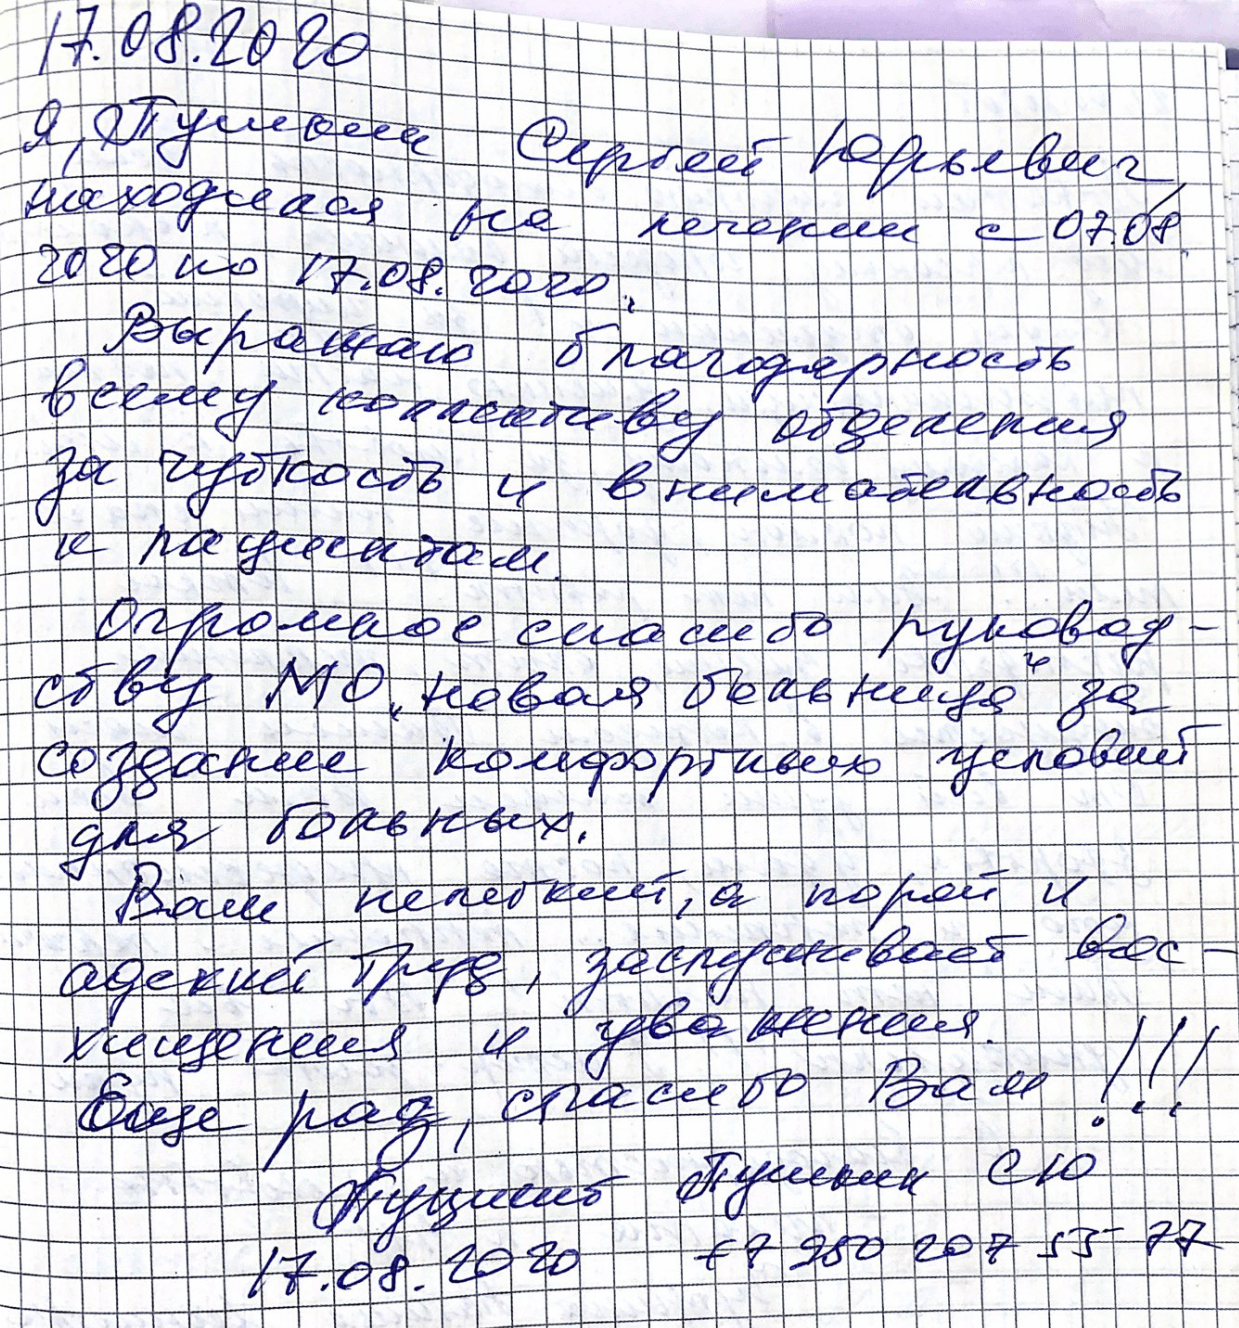 17.08.2020
Я, Сергей Юрьевич,
находился на лечении с 07.08.
2020 по 17.08.2020.
Выражаю благодарность
всему коллективу отделения
за чуткость и внимательность
к пациентам.
Огромное спасибо руковод-
ству МО "Новая больница" за
создание комфортных условий
для больных.
Ваш нелегкий, а порой и
адский труд, заслуживает вос-
хищения и уважения.
Еще раз, спасибо Вам!!!
СЮ
17.08.2020 +7 950 207 55 77